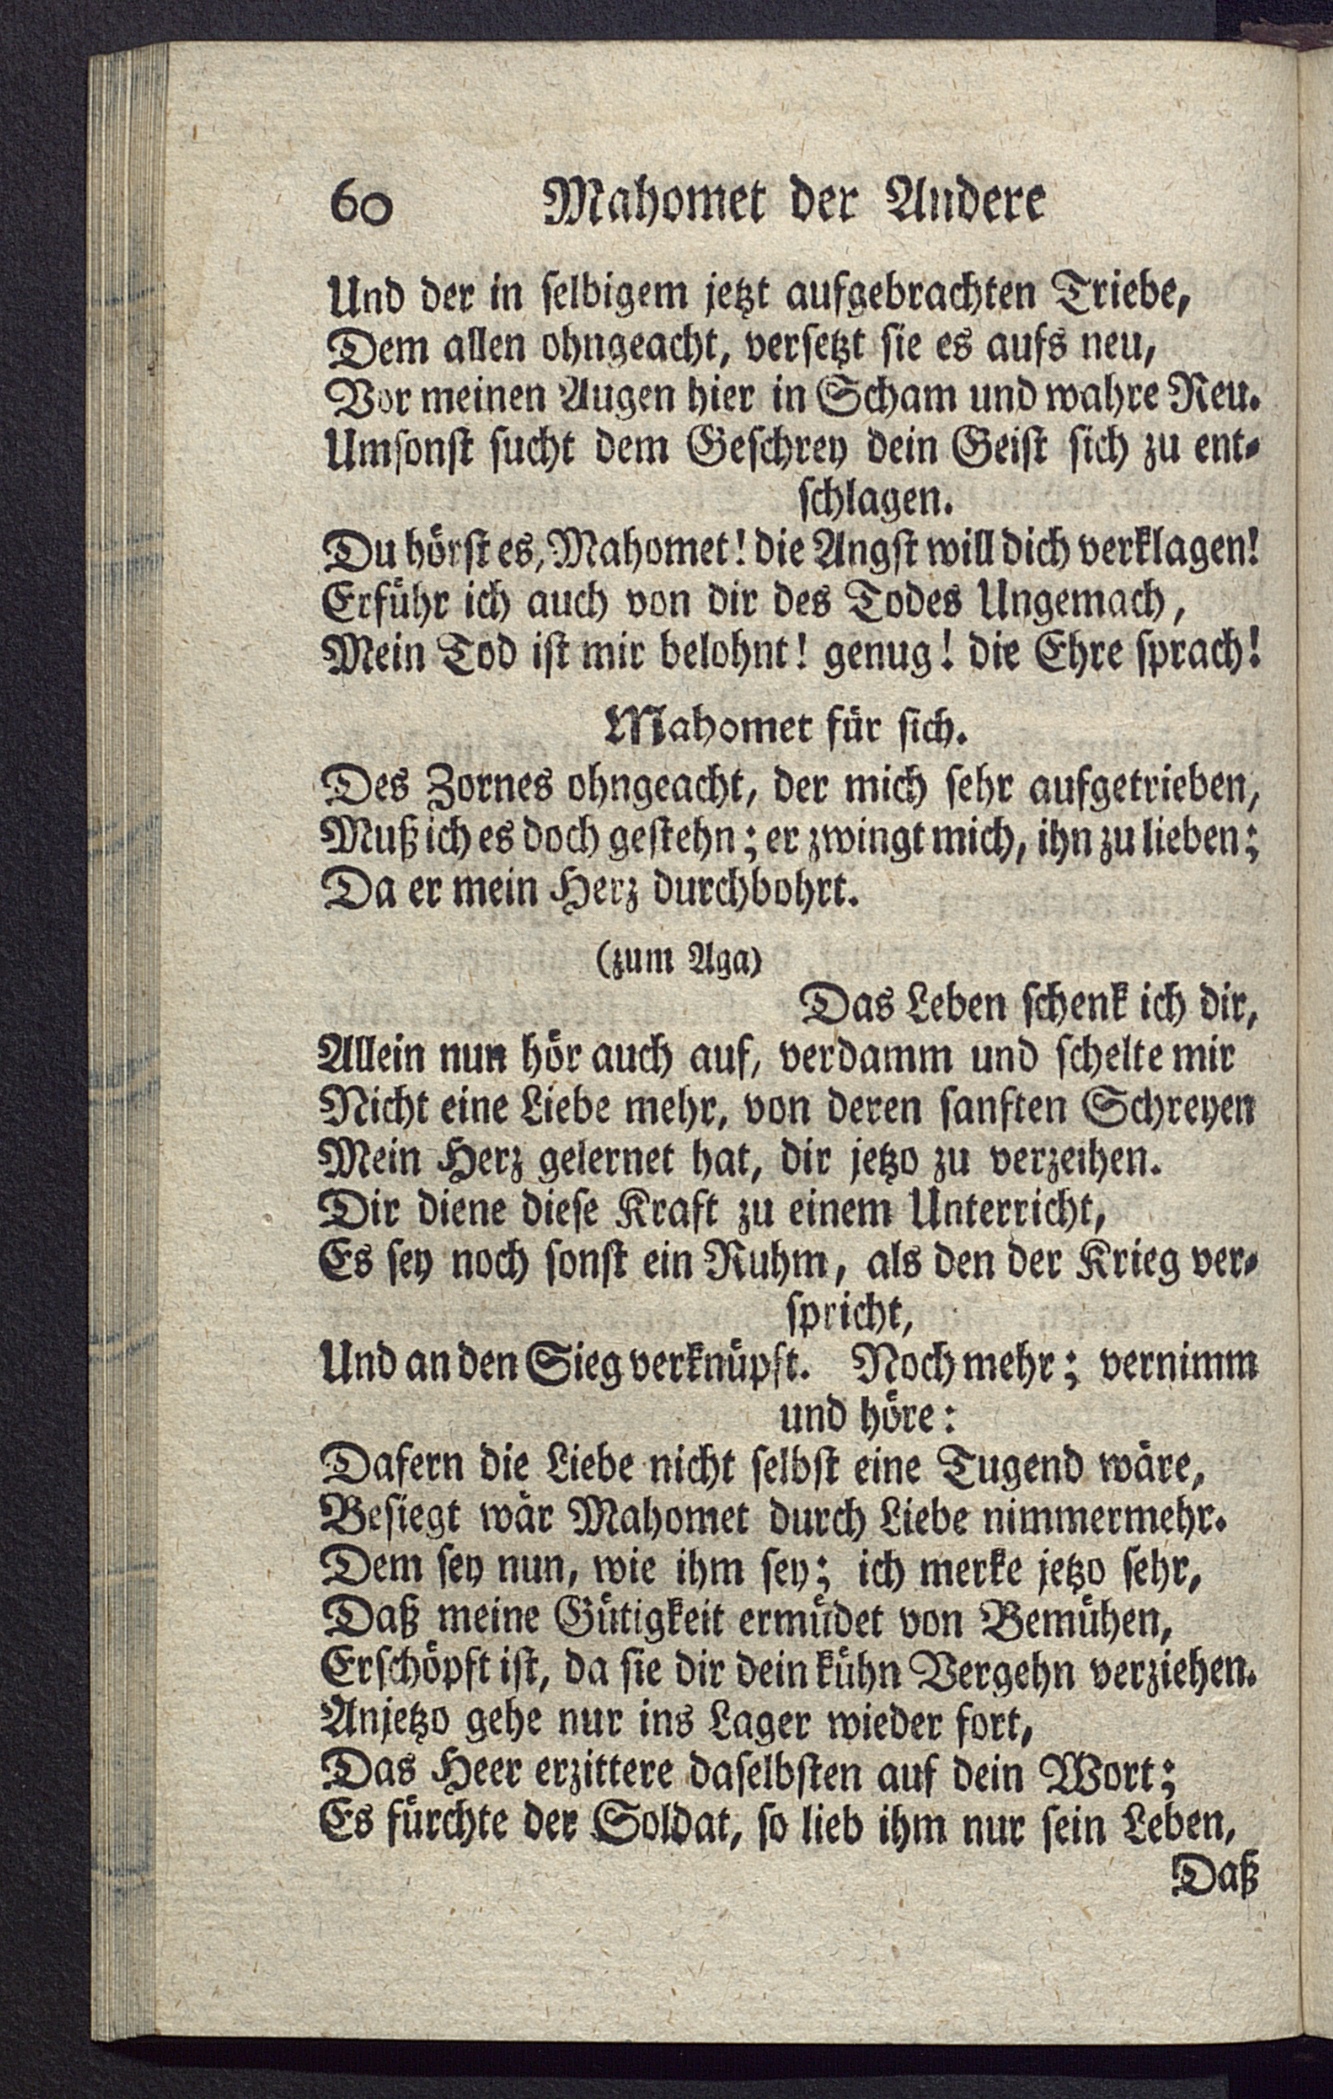 60 Mahomet der Andere
Und der in selbigem jetzt aufgebrachten Triebe,
Dem allen ohngeacht, versetzt sie es aufs neu,
Vor meinen Augen hier in Scham und wahre Reu.
Umsonst sucht dem Geschrey dein Geist sich zu ent-
schlagen.
Du hörst es, Mahomet! die Angst will dich verklagen!
Erführ ich auch von dir des Todes Ungemach,
Mein Tod ist mir belohnt! genug! die Ehre sprach!
Mahomet für sich.
Des Zornes ohngeacht, der mich sehr aufgetrieben,
Muß ich es doch gestehn; er zwingt mich, ihn zu lieben;
Da er mein Herz durchbohrt.
(zum Aga)
Das Leben schenk ich dir,
Allein nun hör auch auf, verdamm und schelte mir
Nicht eine Liebe mehr, von deren sanften Schreyen
Mein Herz gelernet hat, dir jetzo zu verzeihen.
Dir diene diese Kraft zu einem Unterricht,
Es sey noch sonst ein Ruhm, als den der Krieg ver-
spricht,
Und an den Sieg verknüpft. Noch mehr; vernimm
und höre:
Dafern die Liebe nicht selbst eine Tugend wäre,
Besiegt wär Mahomet durch Liebe nimmermehr.
Dem sey nun, wie ihm sey; ich merke jetzo sehr,
Daß meine Gütigkeit ermüdet von Bemühen,
Erschöpft ist, da sie dir dein kühn Vergehn verziehen.
Anjetzo gehe nur ins Lager wieder fort,
Das Heer erzittere daselbsten auf dein Wort;
Es fürchte der Soldat, so lieb ihm nur sein Leben,
Daß